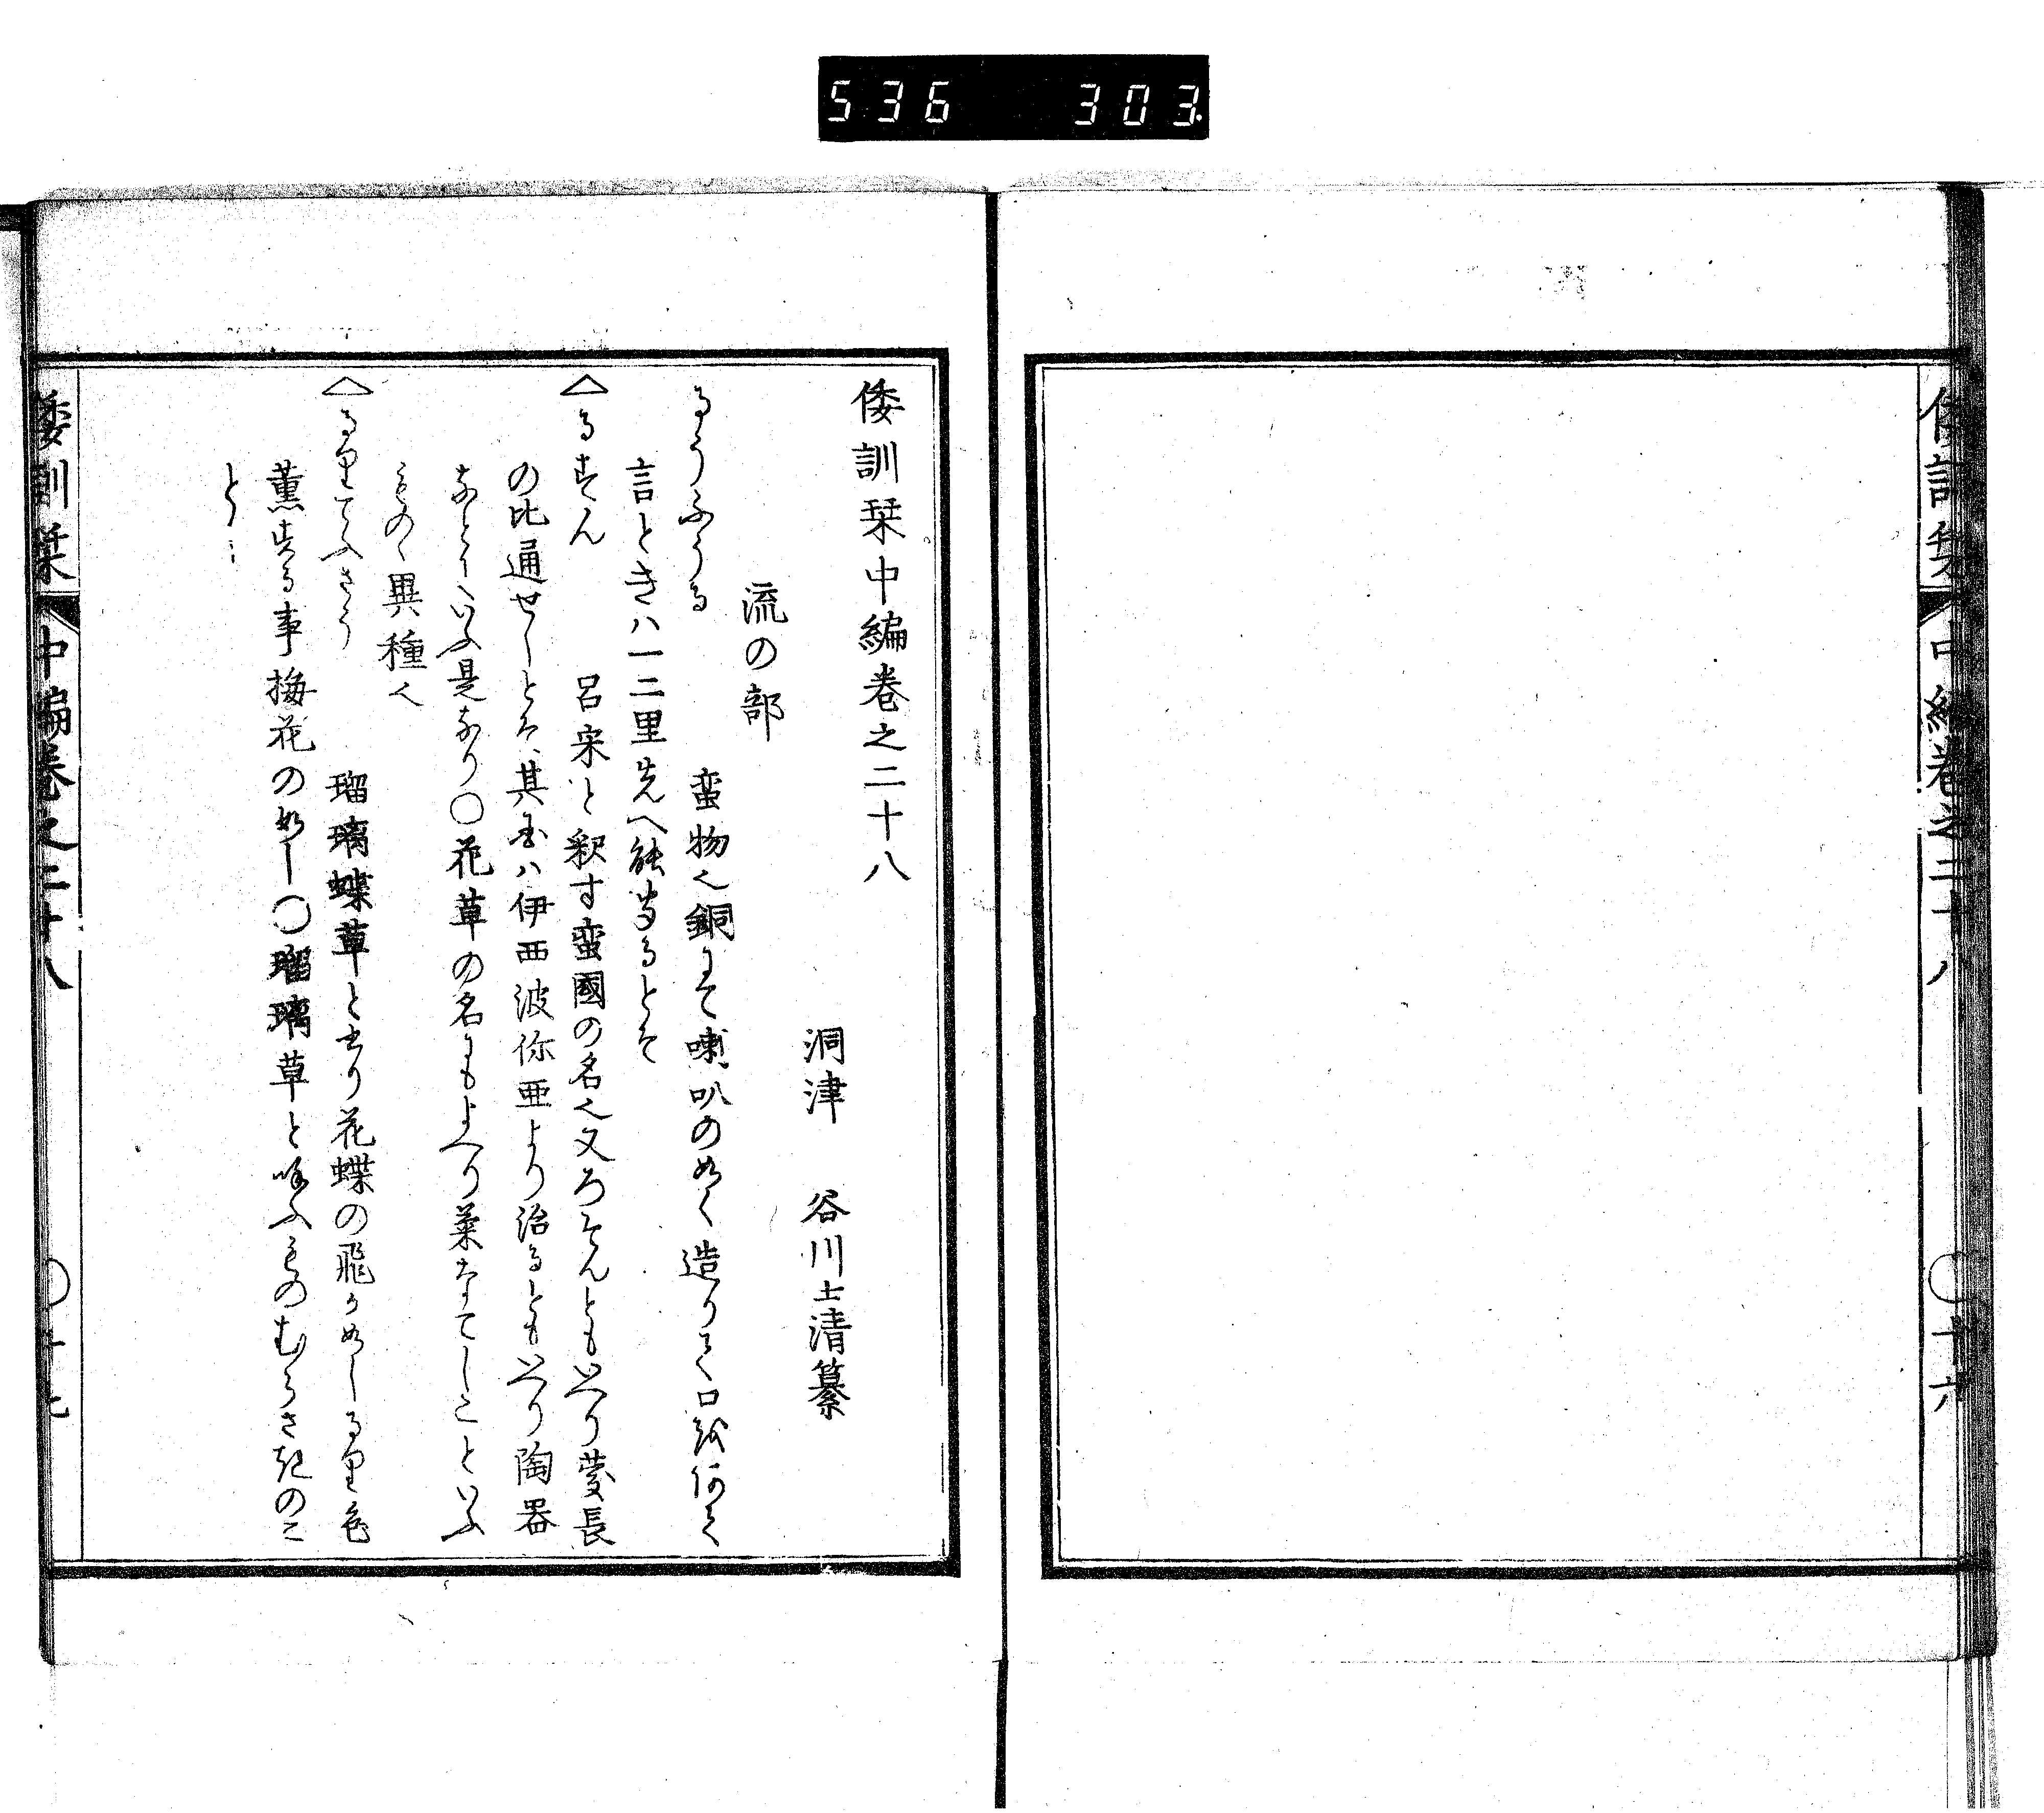 536 303
倭訓栞 中編卷之二十八 〇十六
倭訓栞中編卷之二十八
洞津 谷川士清纂
流の部
るうふうる 蛮物也銅にて喇叭の如く造りて口をあてゝ
言ときハ一二里先へ能聞るとそ
△るすん 呂宋と釈す蛮國の名也又ろそんともいへり慶長
の比通せしとそ其国ハ伊西波你亜より治るともいへり陶器
なとにいふ是なり〇花草の名にもよへり葉なてしこといふ
ものゝ異種也
△るりてふさう 瑠璃蝶草と書り花蝶の飛か如しるり色
薫する事梅花の如し〇瑠璃草と唤ふものむらさきのこ
と
倭訓栞 中編卷之二十八 〇十七